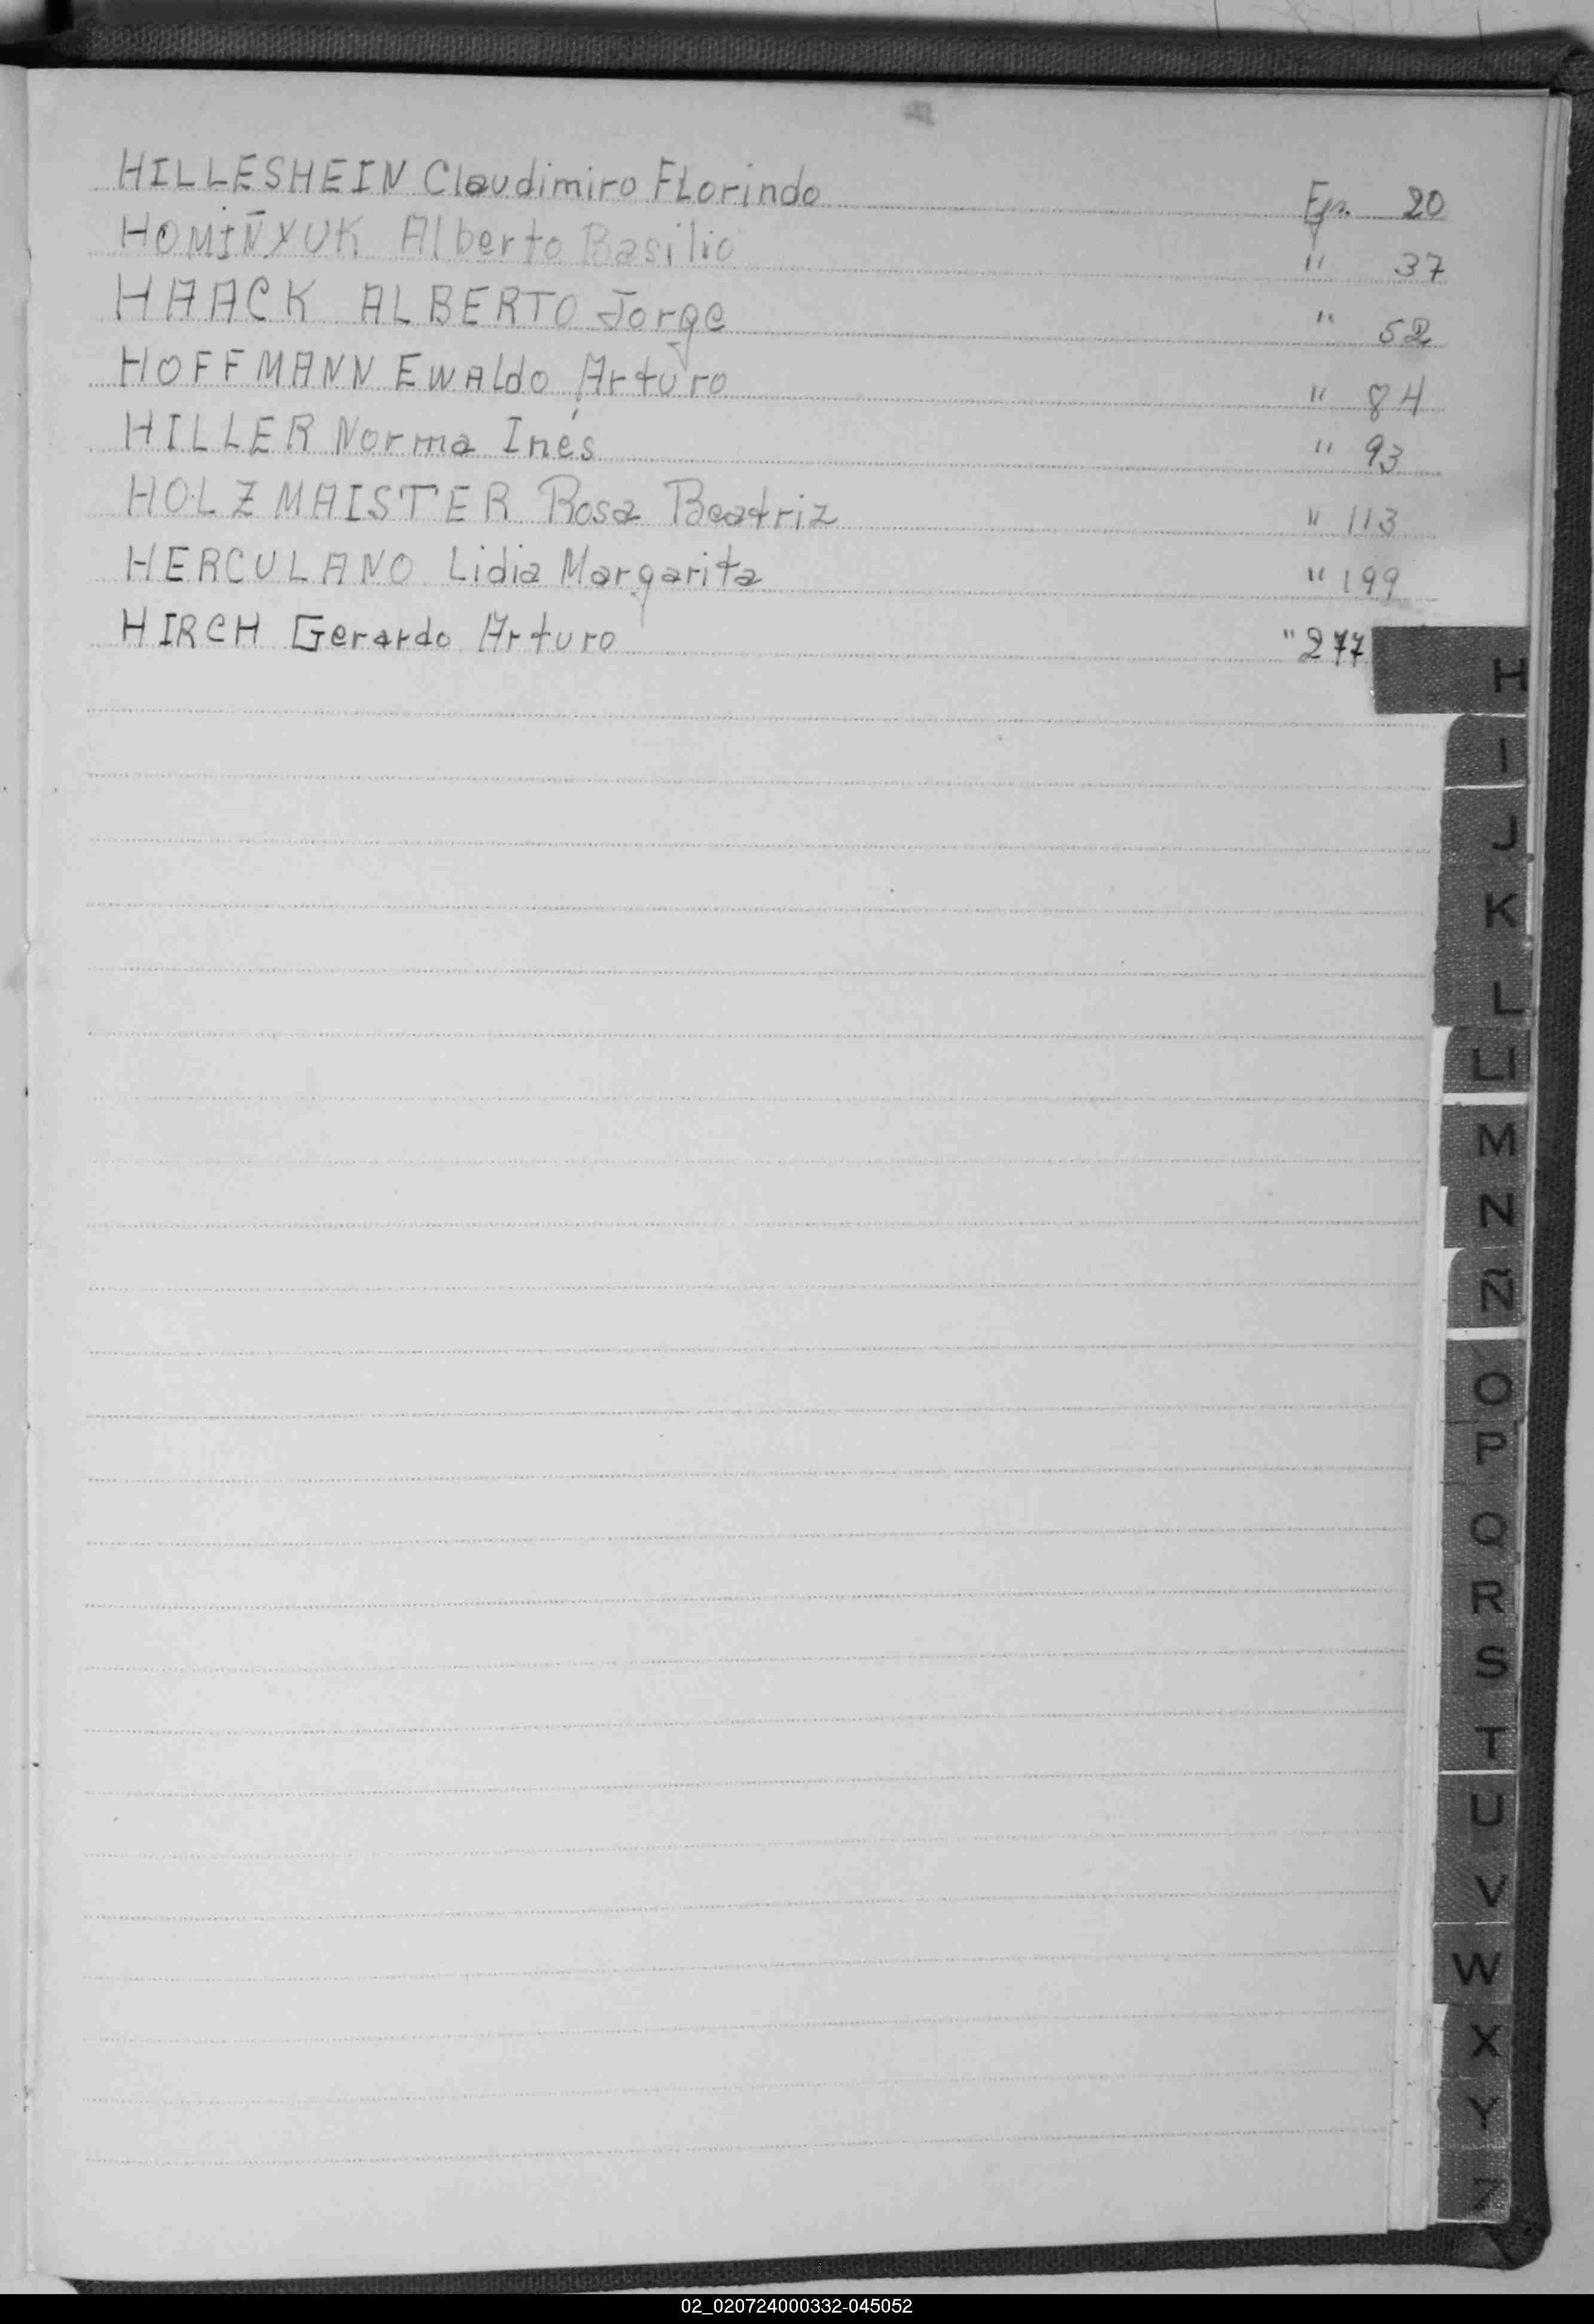 HILLESHEIN Claudimiro FLorindo Fjs. 20
HOMIÑXUK Alberto Basilio " 37
HAACK ALBERTO Jorge " 52
HOFFMANN EWALdo Arturo " 84
HILLER Norma Inés " 93
HOLZMAISTER Rosa Beatriz " 113
HERCULANO Lidia Margarita " 199
HIRCH Gerardo Arturo " 277
H
I
J
K
L
LL
M
N
Ñ
O
P
Q
R
S
T
U
V
W
X
Y
Z
02_020724000332-045052